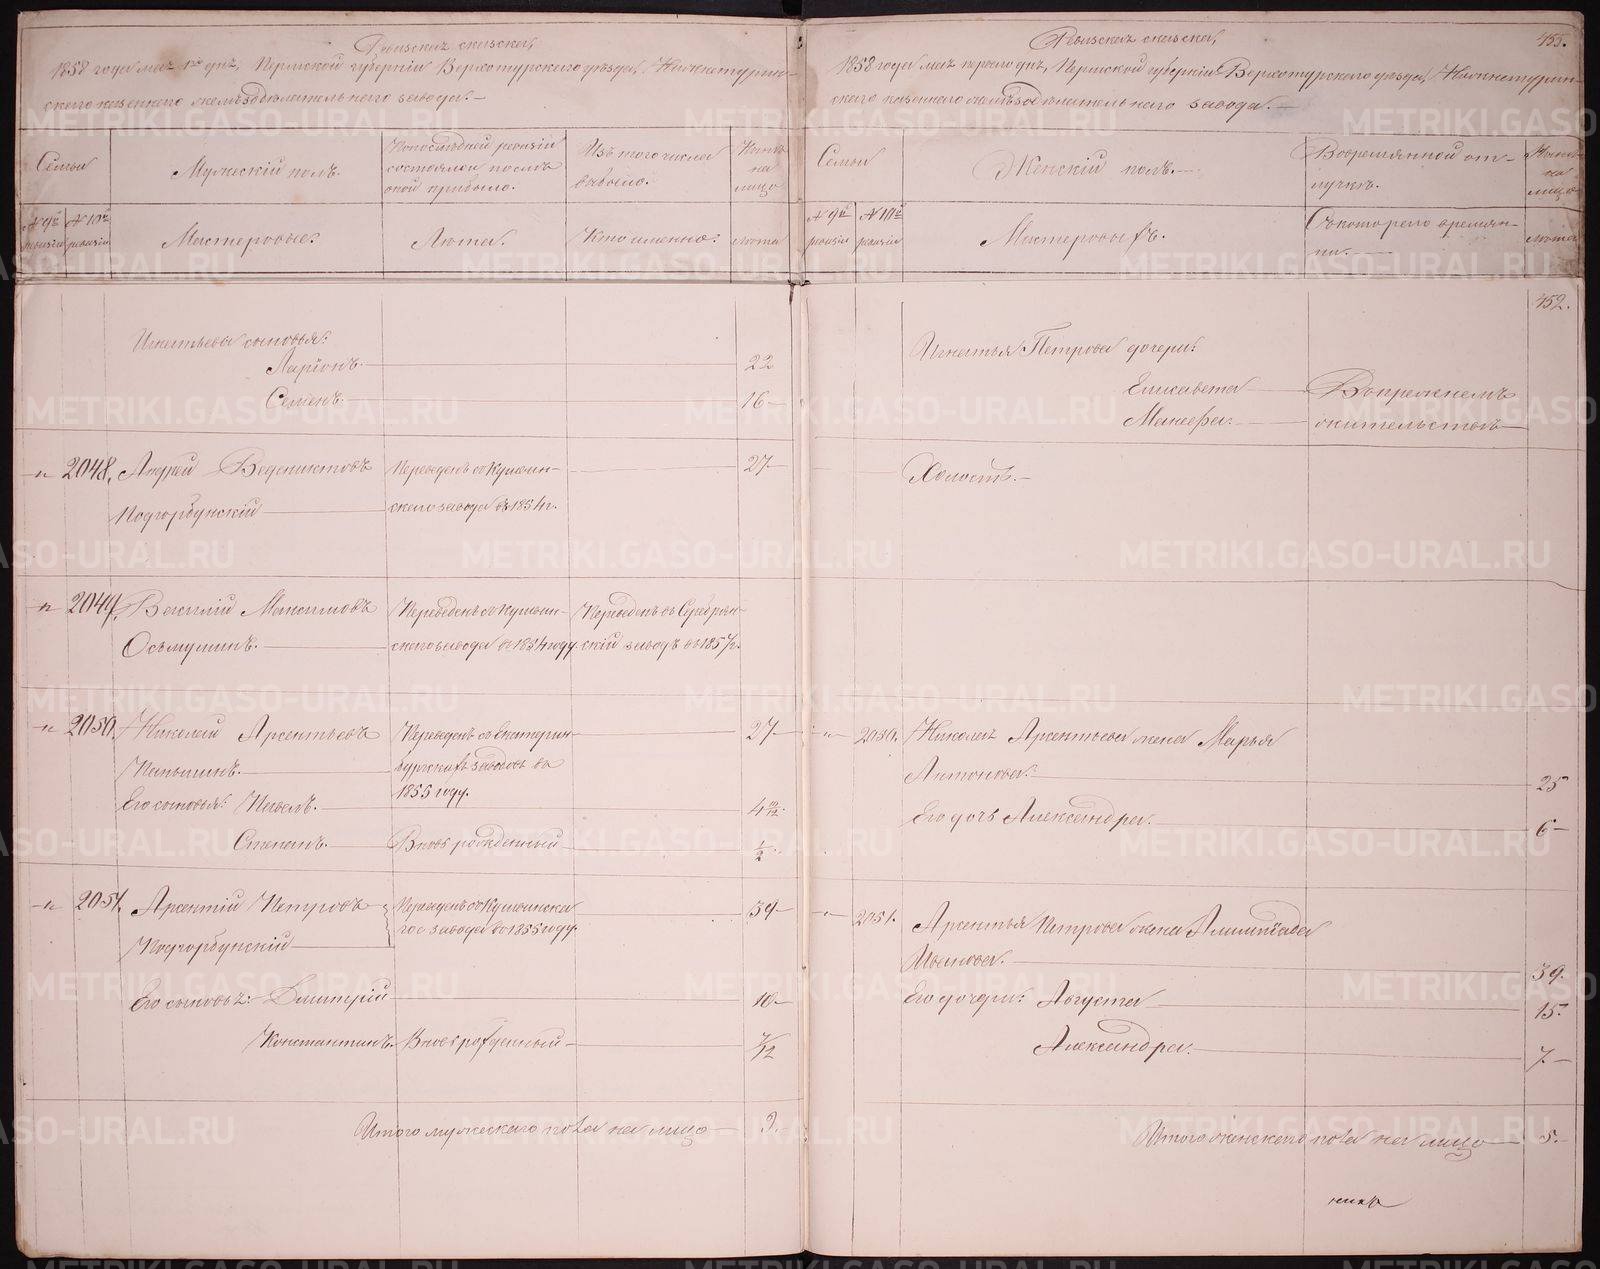 Ревизская сказка,
1858 года мая 1го дня, Пермской губернiи Верхотурскаго уѣзда, Нижнетурин-
скаго казеннаго желѣзодѣлательнаго завода.—
Семьи
Мужескiй полъ.
По последней ревизiи
состояло и послѣ
оной прибыло.
Изъ того числа
выбыло.
Нынѣ
на
лицо
№ 9й
ревизiи
№ 10й
ревизiи
Мастеровые:
Лета.
Кто именно:
лета
Игнатьева сыновья:
Ларiонъ. 22
Семенъ. 16
"
2048. Андрей Веденихтовъ
Подгорбунскiй
Переведенъ съ Кушвин-
скаго завода въ 1854 г.
27
"
2049. Василiй Максимовъ
Осьмушинъ.
Переведенъ съ Кушвин-
скаго завода въ 1854 году.
Переведенъ въ Серебрян-
скiй заводъ въ 1857 г.
"
2050. Николай Арсентьевъ
Паньшинъ.
Переведенъ съ Екатерин-
бургскихъ заводовъ въ
1855 году.
27
Его сыновья: Павелъ. 4 10/12
Степанъ. Вновь рожденный 1/2
"
2051. Арсентiй Петровъ
Подгорбунскiй
Переведенъ съ Кушвинска
гос завода въ 1855 году.
39
Его сыновья: Дмитрiй 10
Константинъ. Вновь рожденный 7/12
Итого мужескаго пола на лицо 9.
Ревизская сказка, 455.
1858 года мая перваго дня, Пермской губернiи Верхотурскаго уѣзда, Нижнетурин-
скаго казеннаго желѣзодѣлательнаго завода.—
Семьи
Женскiй полъ.
Во временной от-
лучкѣ.
Нынѣ
на
лицо
№ 9й
ревизiи
№ 10й
ревизiи
Мастеровыхъ.
Съ котораго времян-
ни.
лета
452.
Игнатья Петрова дочери:
Елисавета
Макефа.
Въ прежнемъ
жительствѣ
Холостъ.
"
2050. Николая Арсентьева жена Марья
Антонова. 25
Его дочь Александра. 6
"
2051. Арсентья Петрова жена
Иванова. 39.
Его дочери: Августа 15.
Александра. 7.
Итого женскаго пола на лицо 5.
METRIKI.GASO-URAL.RU